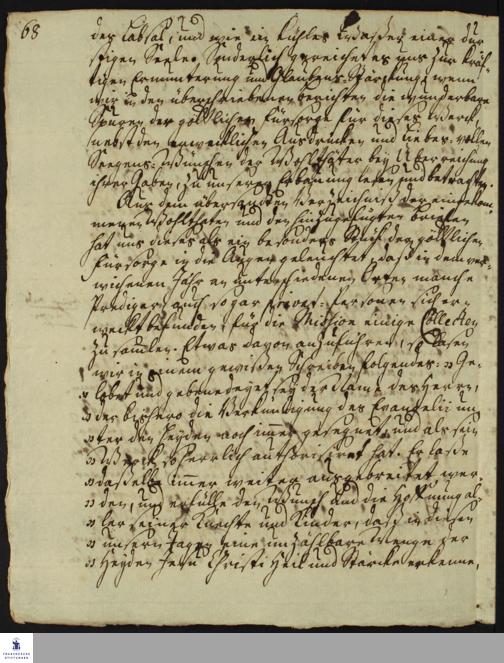 68
des Labsal, und wie ein kühles Wasser einer dur-
stigen Seele. Sonderlich gereichet es uns zur kräf-
tigen Ermunterung und Glaubens-Stärckung, wenn
wir in den überschriebenen Berichten die wunderbare
Spuren der göttlichen Fürsorge für dieses Werck,
nebst den erwecklichen Ausdrücken und Liebes-vollen
Seegens-Wünschen der Wohlthäter bey Überreichung
ihrer Gaben, zu unserer Erbauung lesen und betrachten.
Aus dem übersandten Verzeichniß der eingekom-
menen Wohlthaten und den hinzugefügten Briefen
hat uns dieses als ein besonders Stück der göttlichen
Fürsorge in die Augen geleuchtet, daß in dem ver-
wichenen Jahr an unterschiedenen Orten manche
Prediger, auch sogar Privat-Personen sich er-
weckt befunden, für die Mission einige Collecten
zu samlen. Etwas davon anzuführen, so lasen
wir in einem gewissen Schreiben folgendes: Ge-
lobet und gebenedeyet sey der Name des Herrn,
der bishero die Verkündigung des Evangelii un-
ter den Heyden noch immer gesegnet, und als sein
Werck so herrlich hat. Er lasse
dasselbe immer weiter ausgebreitet wer-
den, und erfülle den Wunsch und die Hoffnung al-
ler seiner Knechte und Kinder, daß in diesen
unsern Tagen eine unzählbare Menge der
Heyden Jesu Christi Heil und Stärcke erkenne,
FRANCKESCHE
STIFTUNGEN